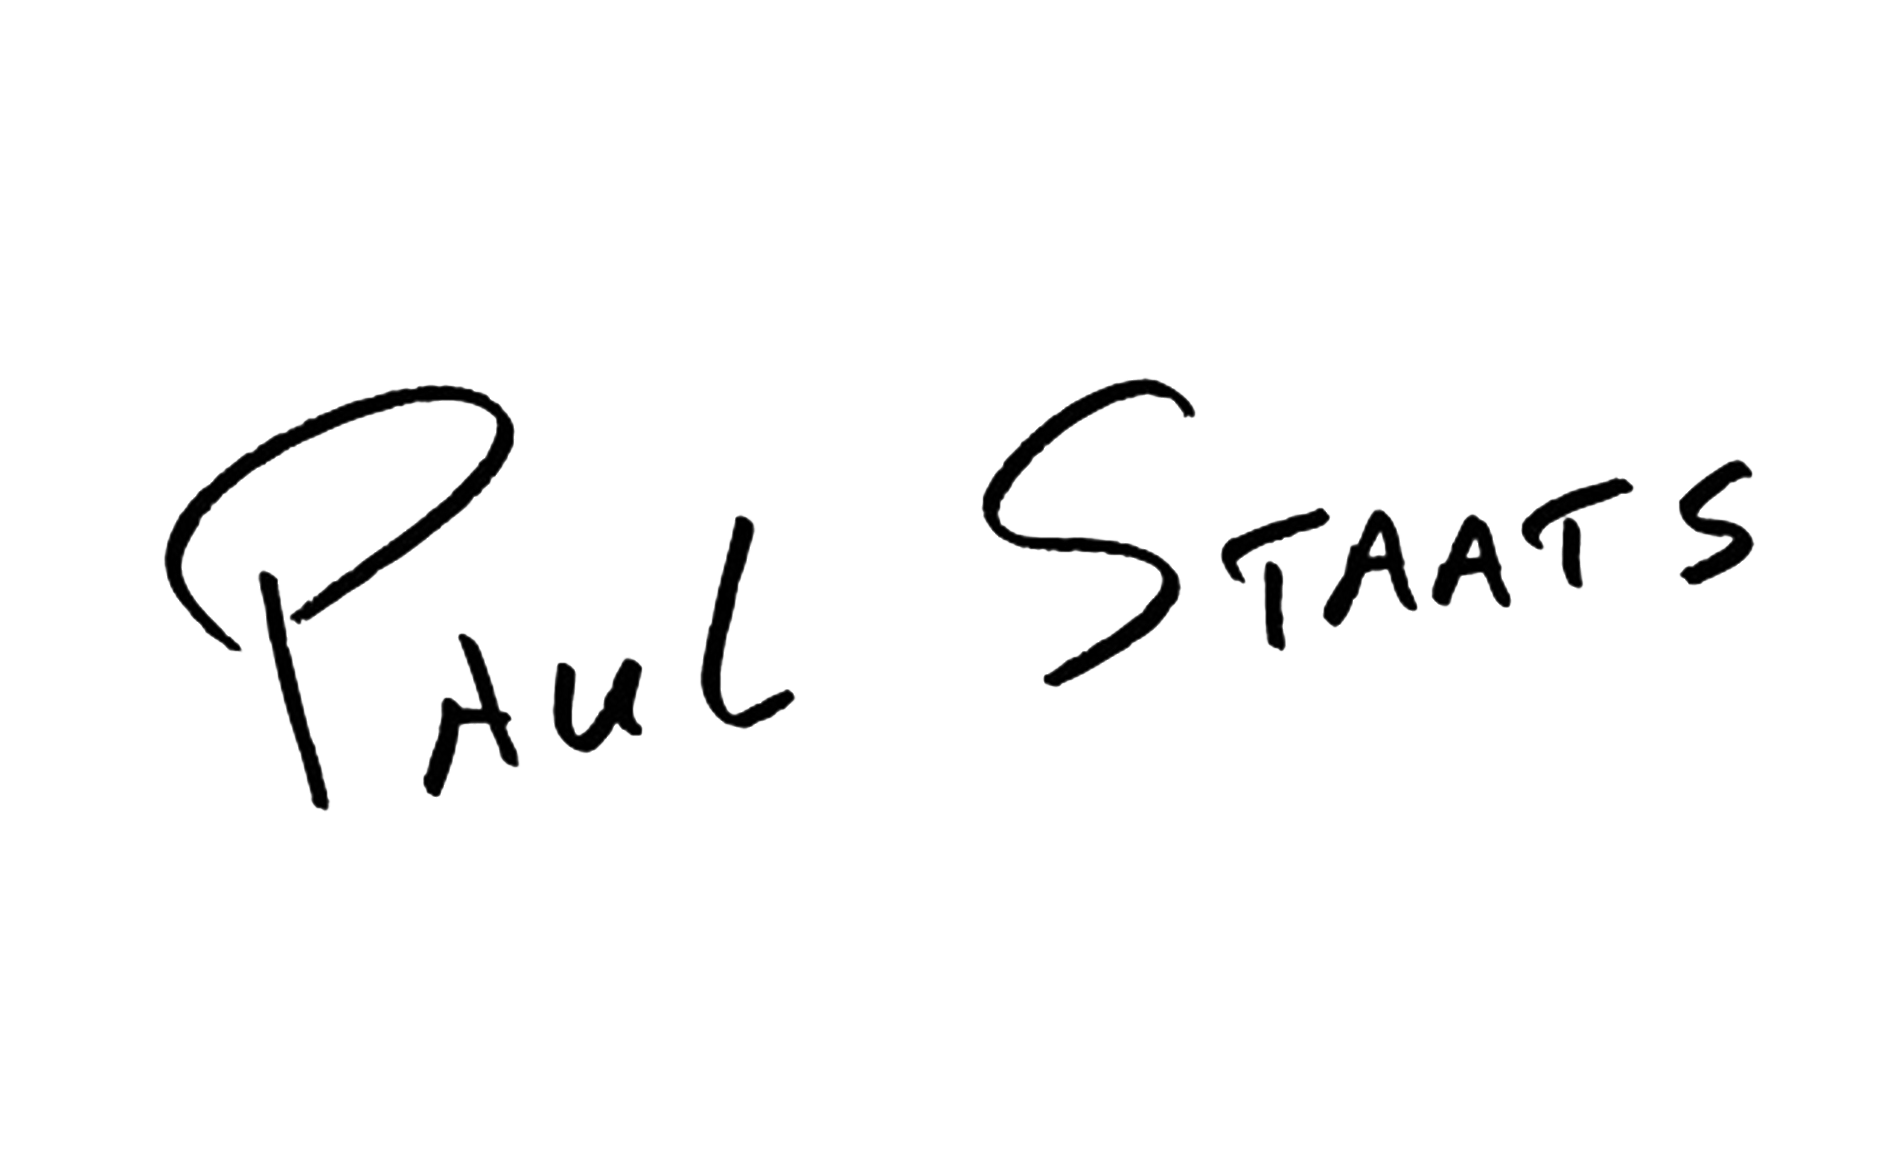 Paul Staats